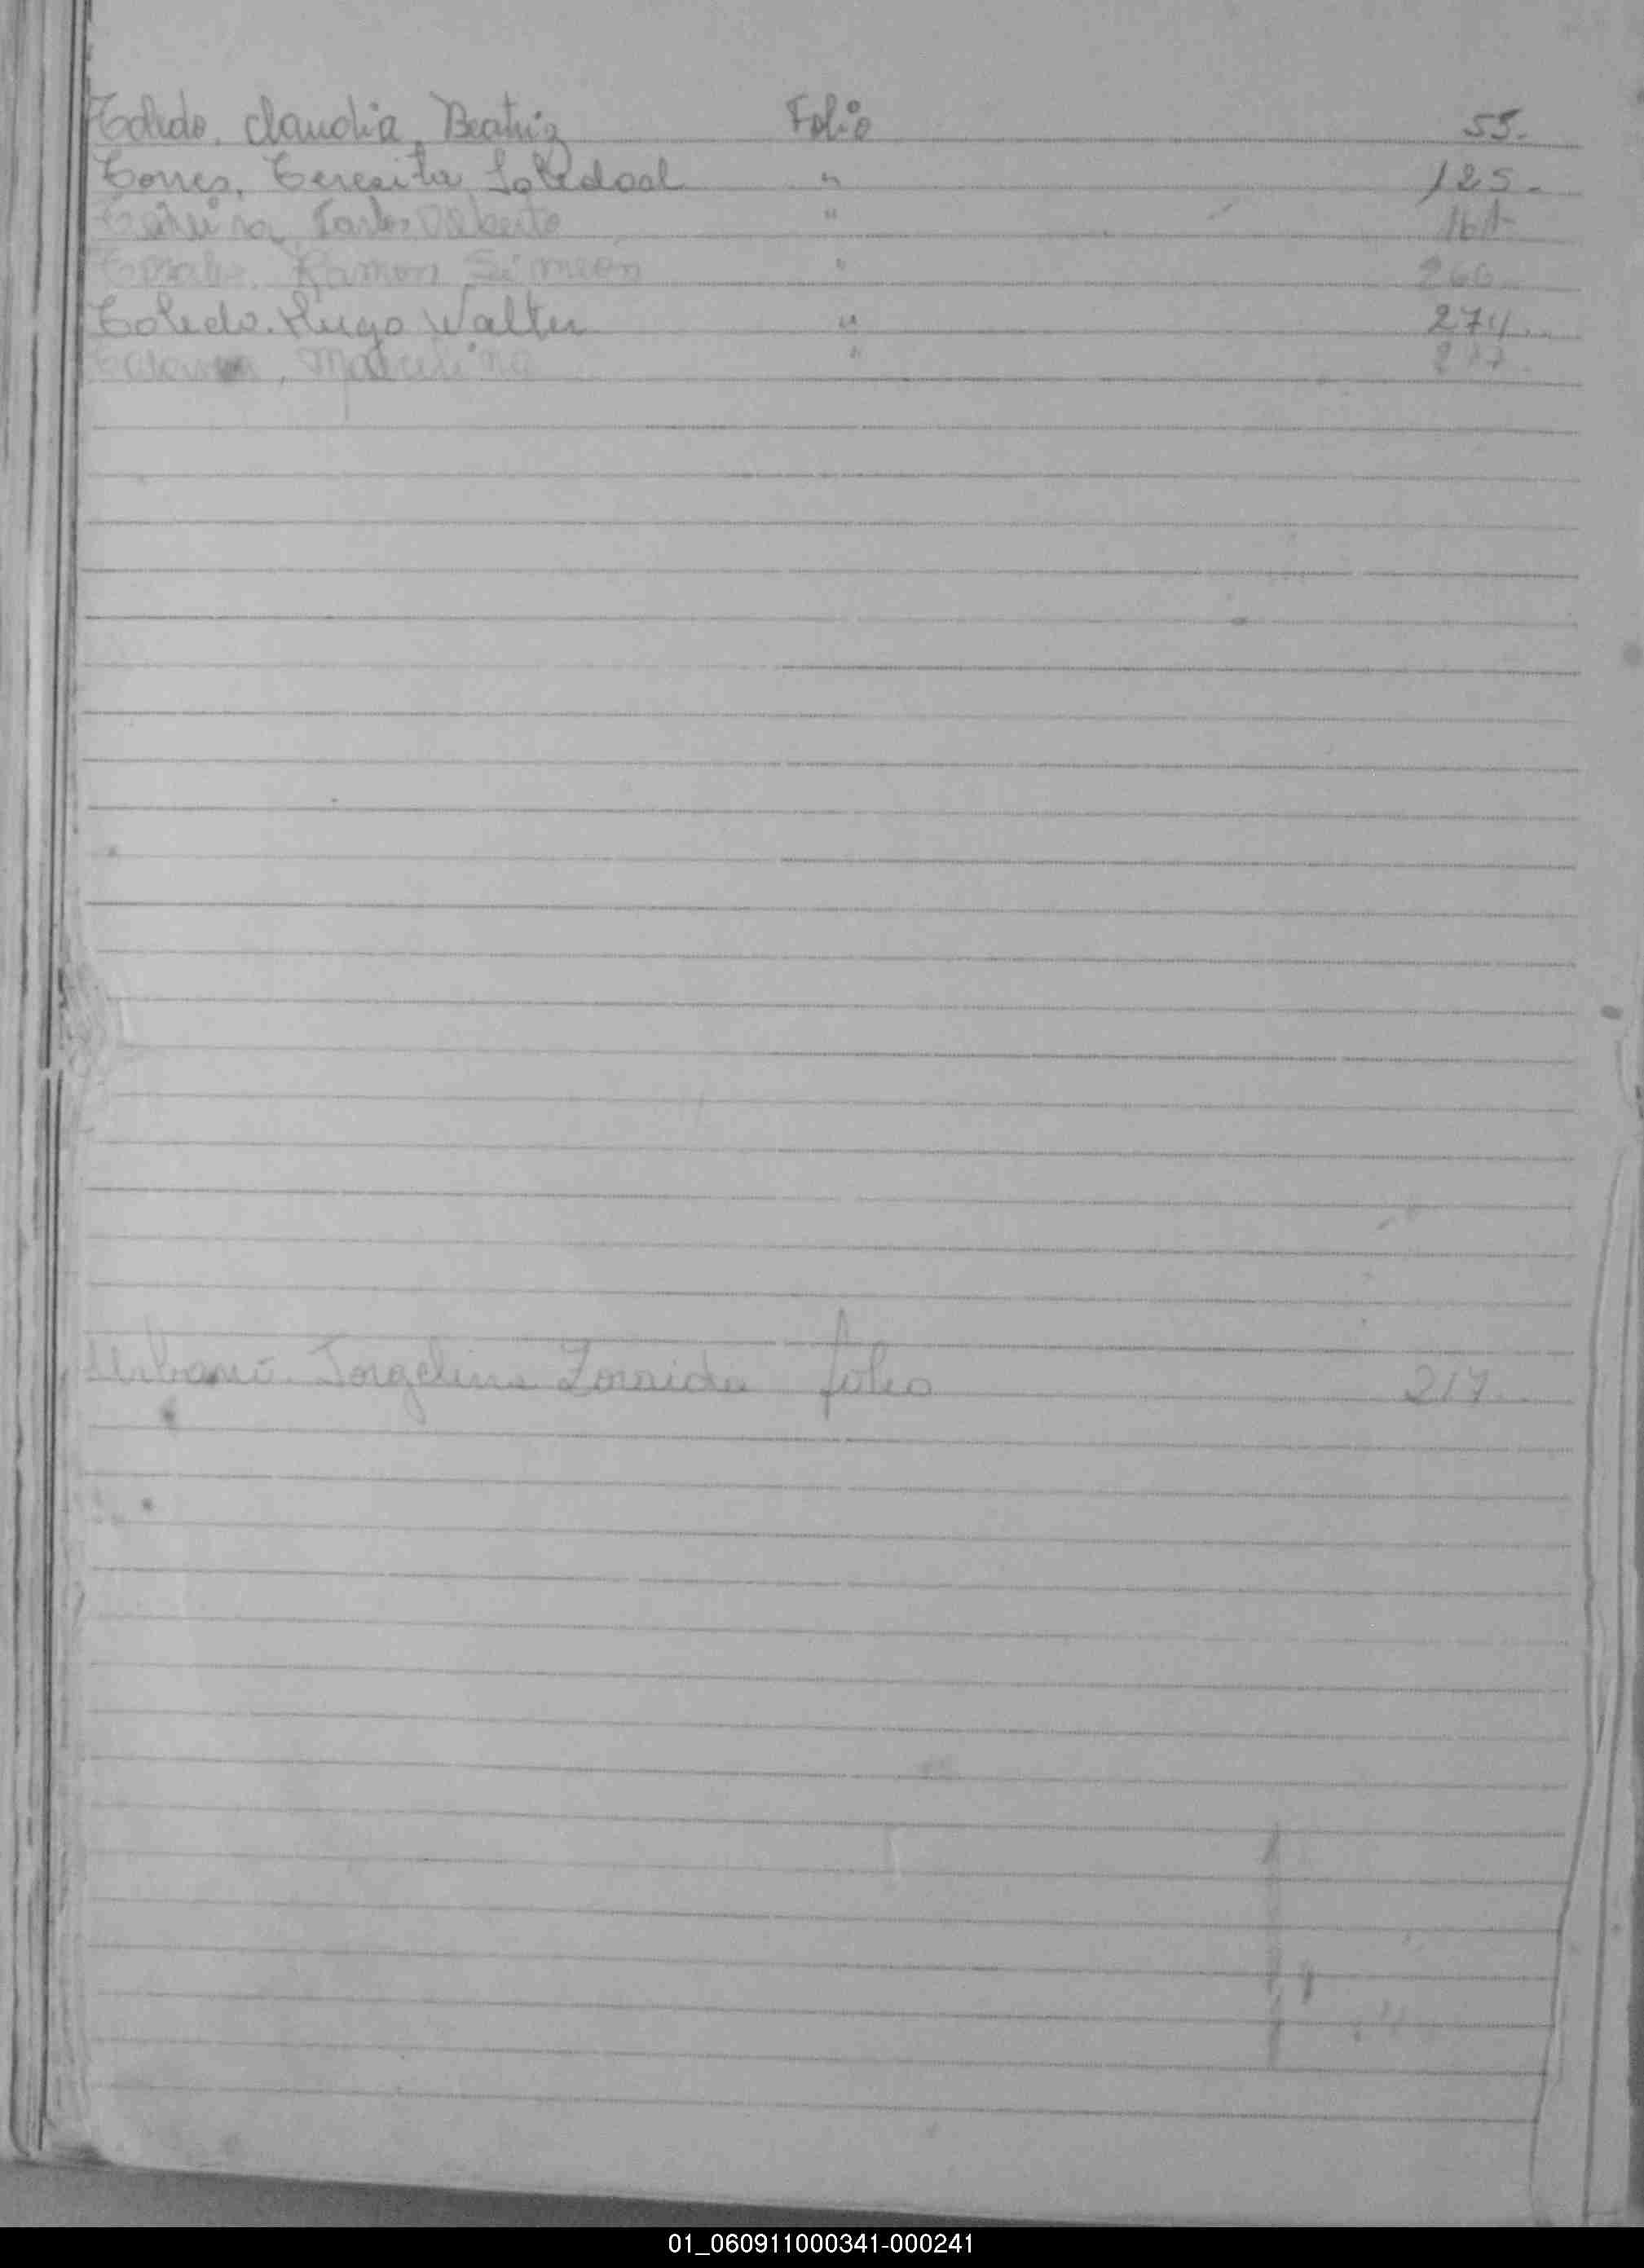 Toledo, Claudia Beatriz Folio 55.
Torres, Teresita Soledad " 125.
Carlos Alberto "
Ramon Simeon " 266
Toledo. Hugo Walter " 274
Marcelina " 277
Urbani. Jorgelina Zoraida folio 217
01_060911000341-000241